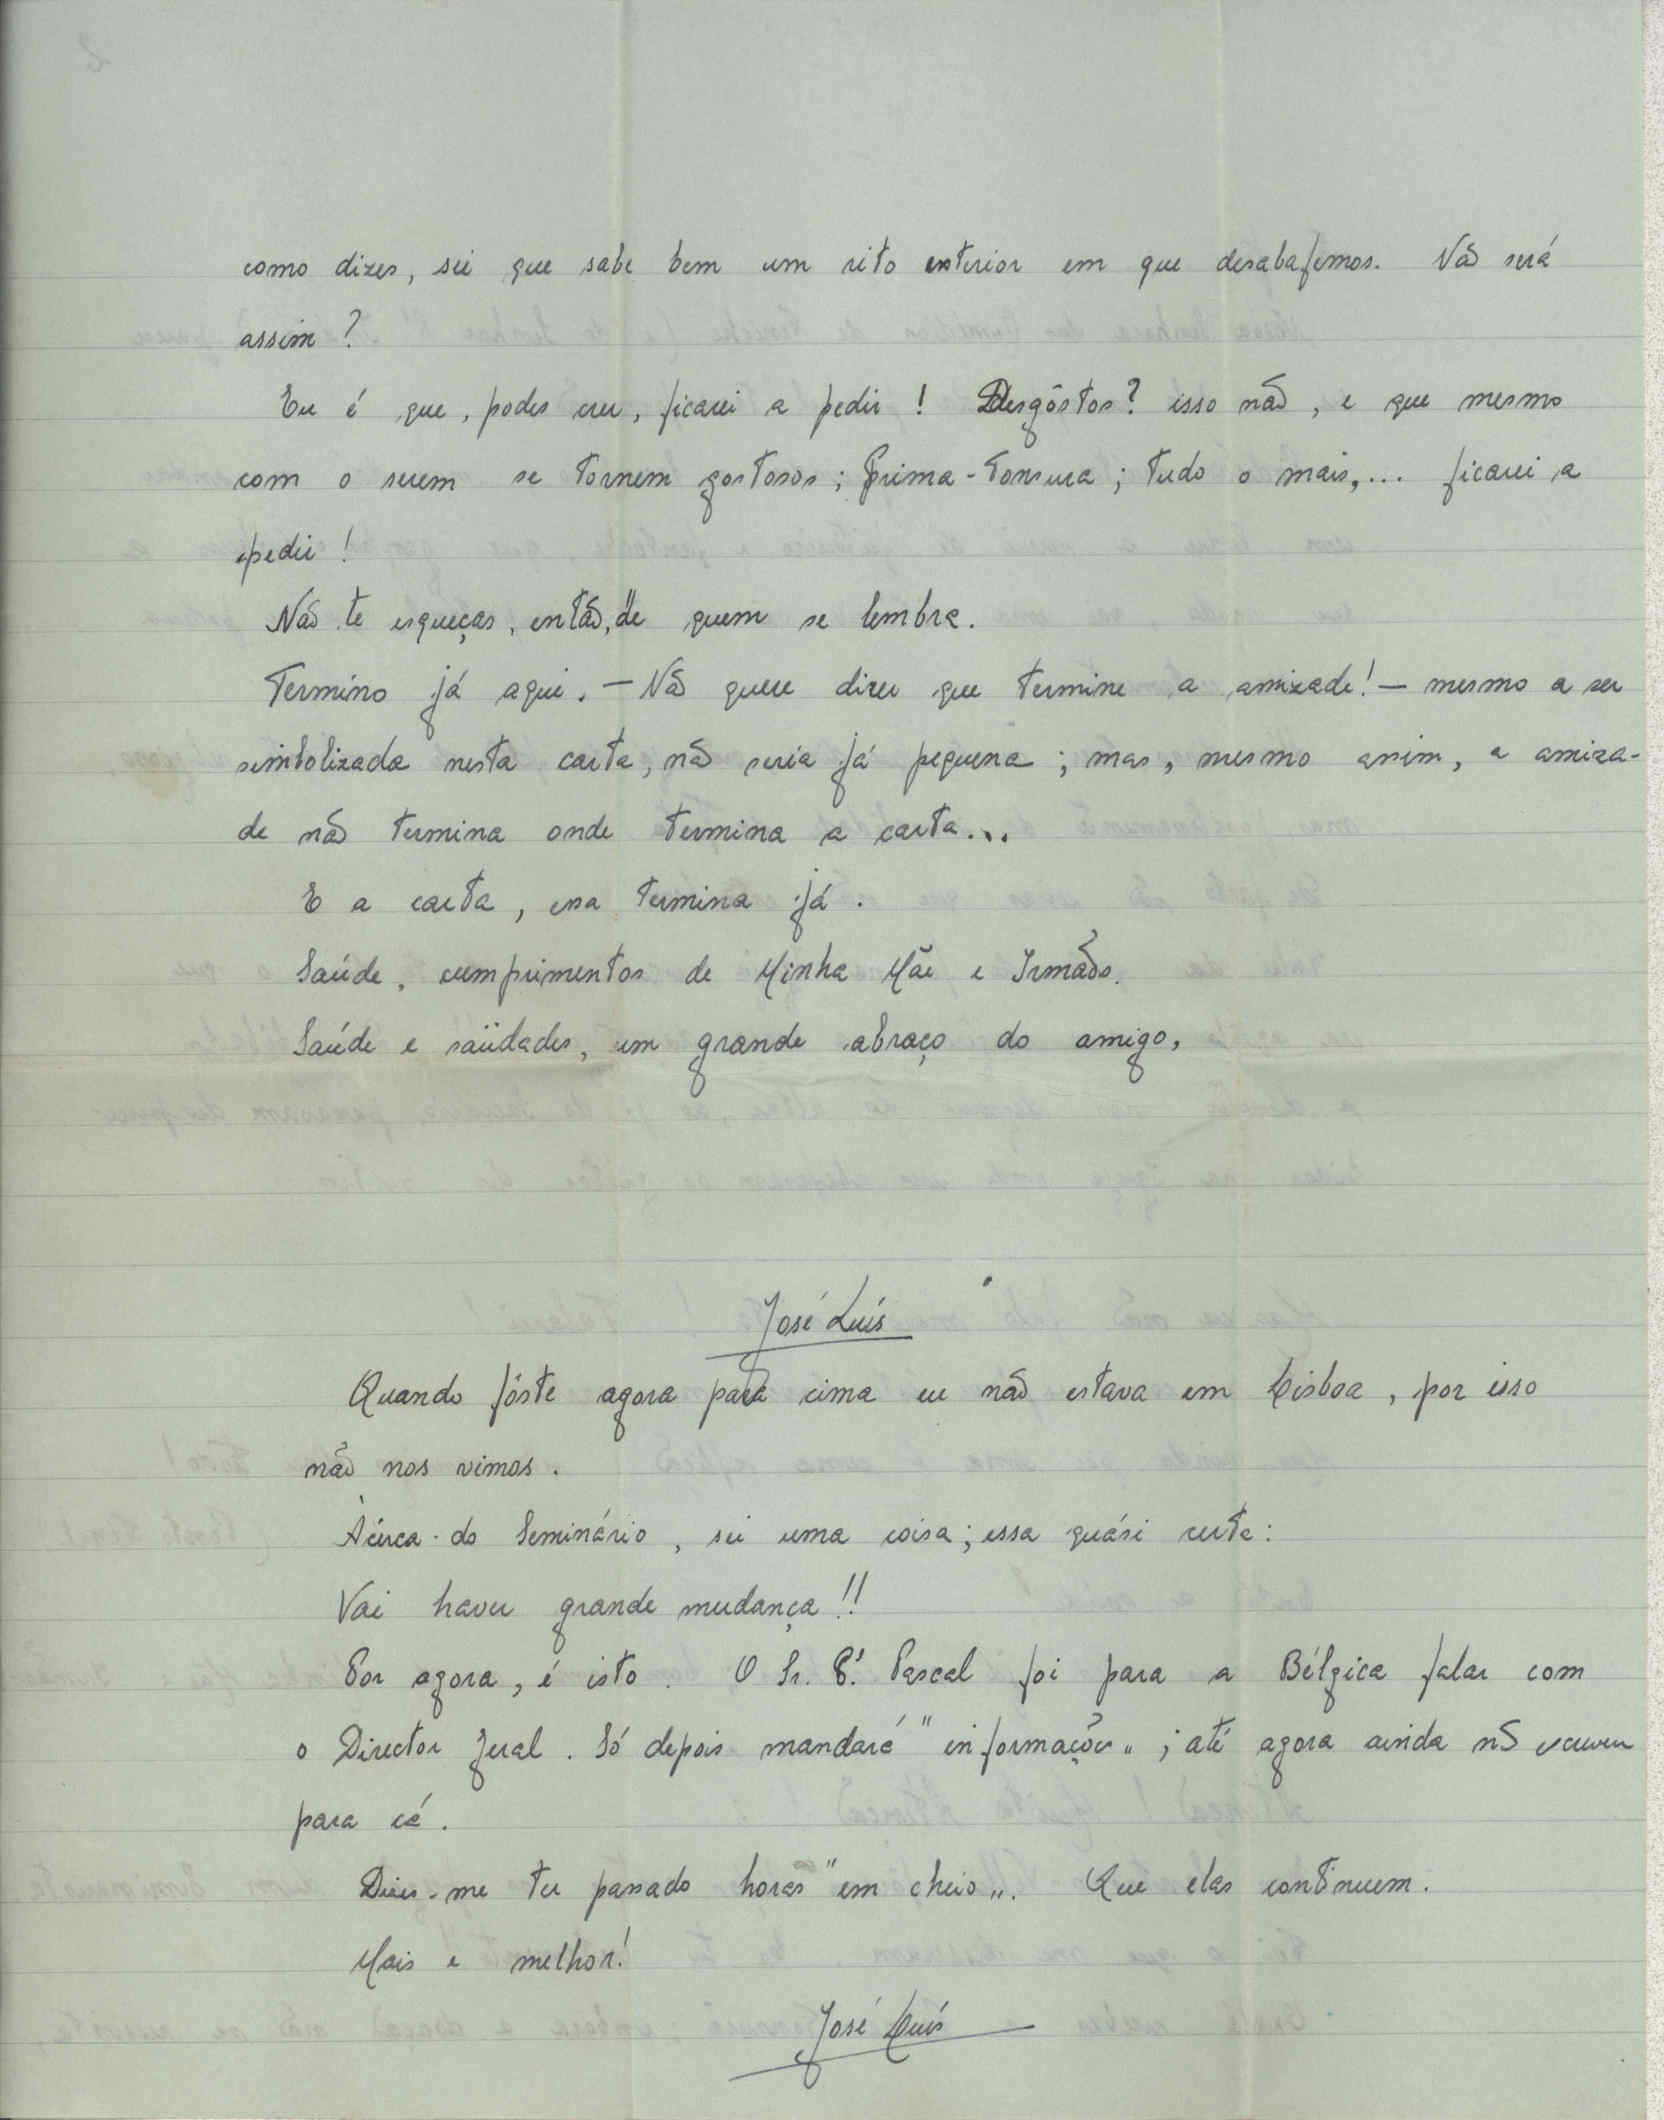 como dizes, sei que sabe bem um rito exterior em que desabafemos. Não será
assim?
Eu é que, podes crer, ficarei a pedir! Desgôstos? isso não, e que mesmo
com o serem se tornem gostosos; Prima-Tonsura; tudo o mais,... ficarei a
pedir!
Não te esqueças, então, de quem se lembra.
Termino já aqui. — Não quere dizer que termine a amizade! — mesmo a ser
simbolizada nesta carta, não seria já pequena; mas, mesmo assim, a amiza-
de não termina onde termina a carta...
E a carta, essa termina já.
Saúde, cumprimentos de Minha Mãe e Irmãos.
Saúde e saüdades, um grande abraço do amigo,
José Luís
Quando fôste agora para cima eu não estava em Lisboa, por isso
não nos vimos.
Àcêrca do Seminário, sei uma coisa; essa quási certa:
Vai haver grande mudança!!
Por agora, é isto. O Sr. P.e Pascal foi para a Bélgica falar com
o Director Geral. Só depois mandará "informações„; até agora ainda não escreveu
para cá.
Dizes-me ter passado horas "em cheio„. Que elas continuem.
Mais e melhor!
José Luís